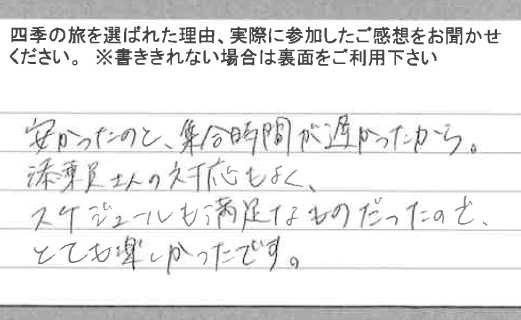 四季の旅を選ばれた理由、実際に参加したご感想をお聞かせ
ください。 ※書ききれない場合は裏面をご利用下さい
安かったのと、集合時間が遅かったから。
添乗員さんの対応もよく、
スケジュールも満足なものだったので、
とても楽しかったです。